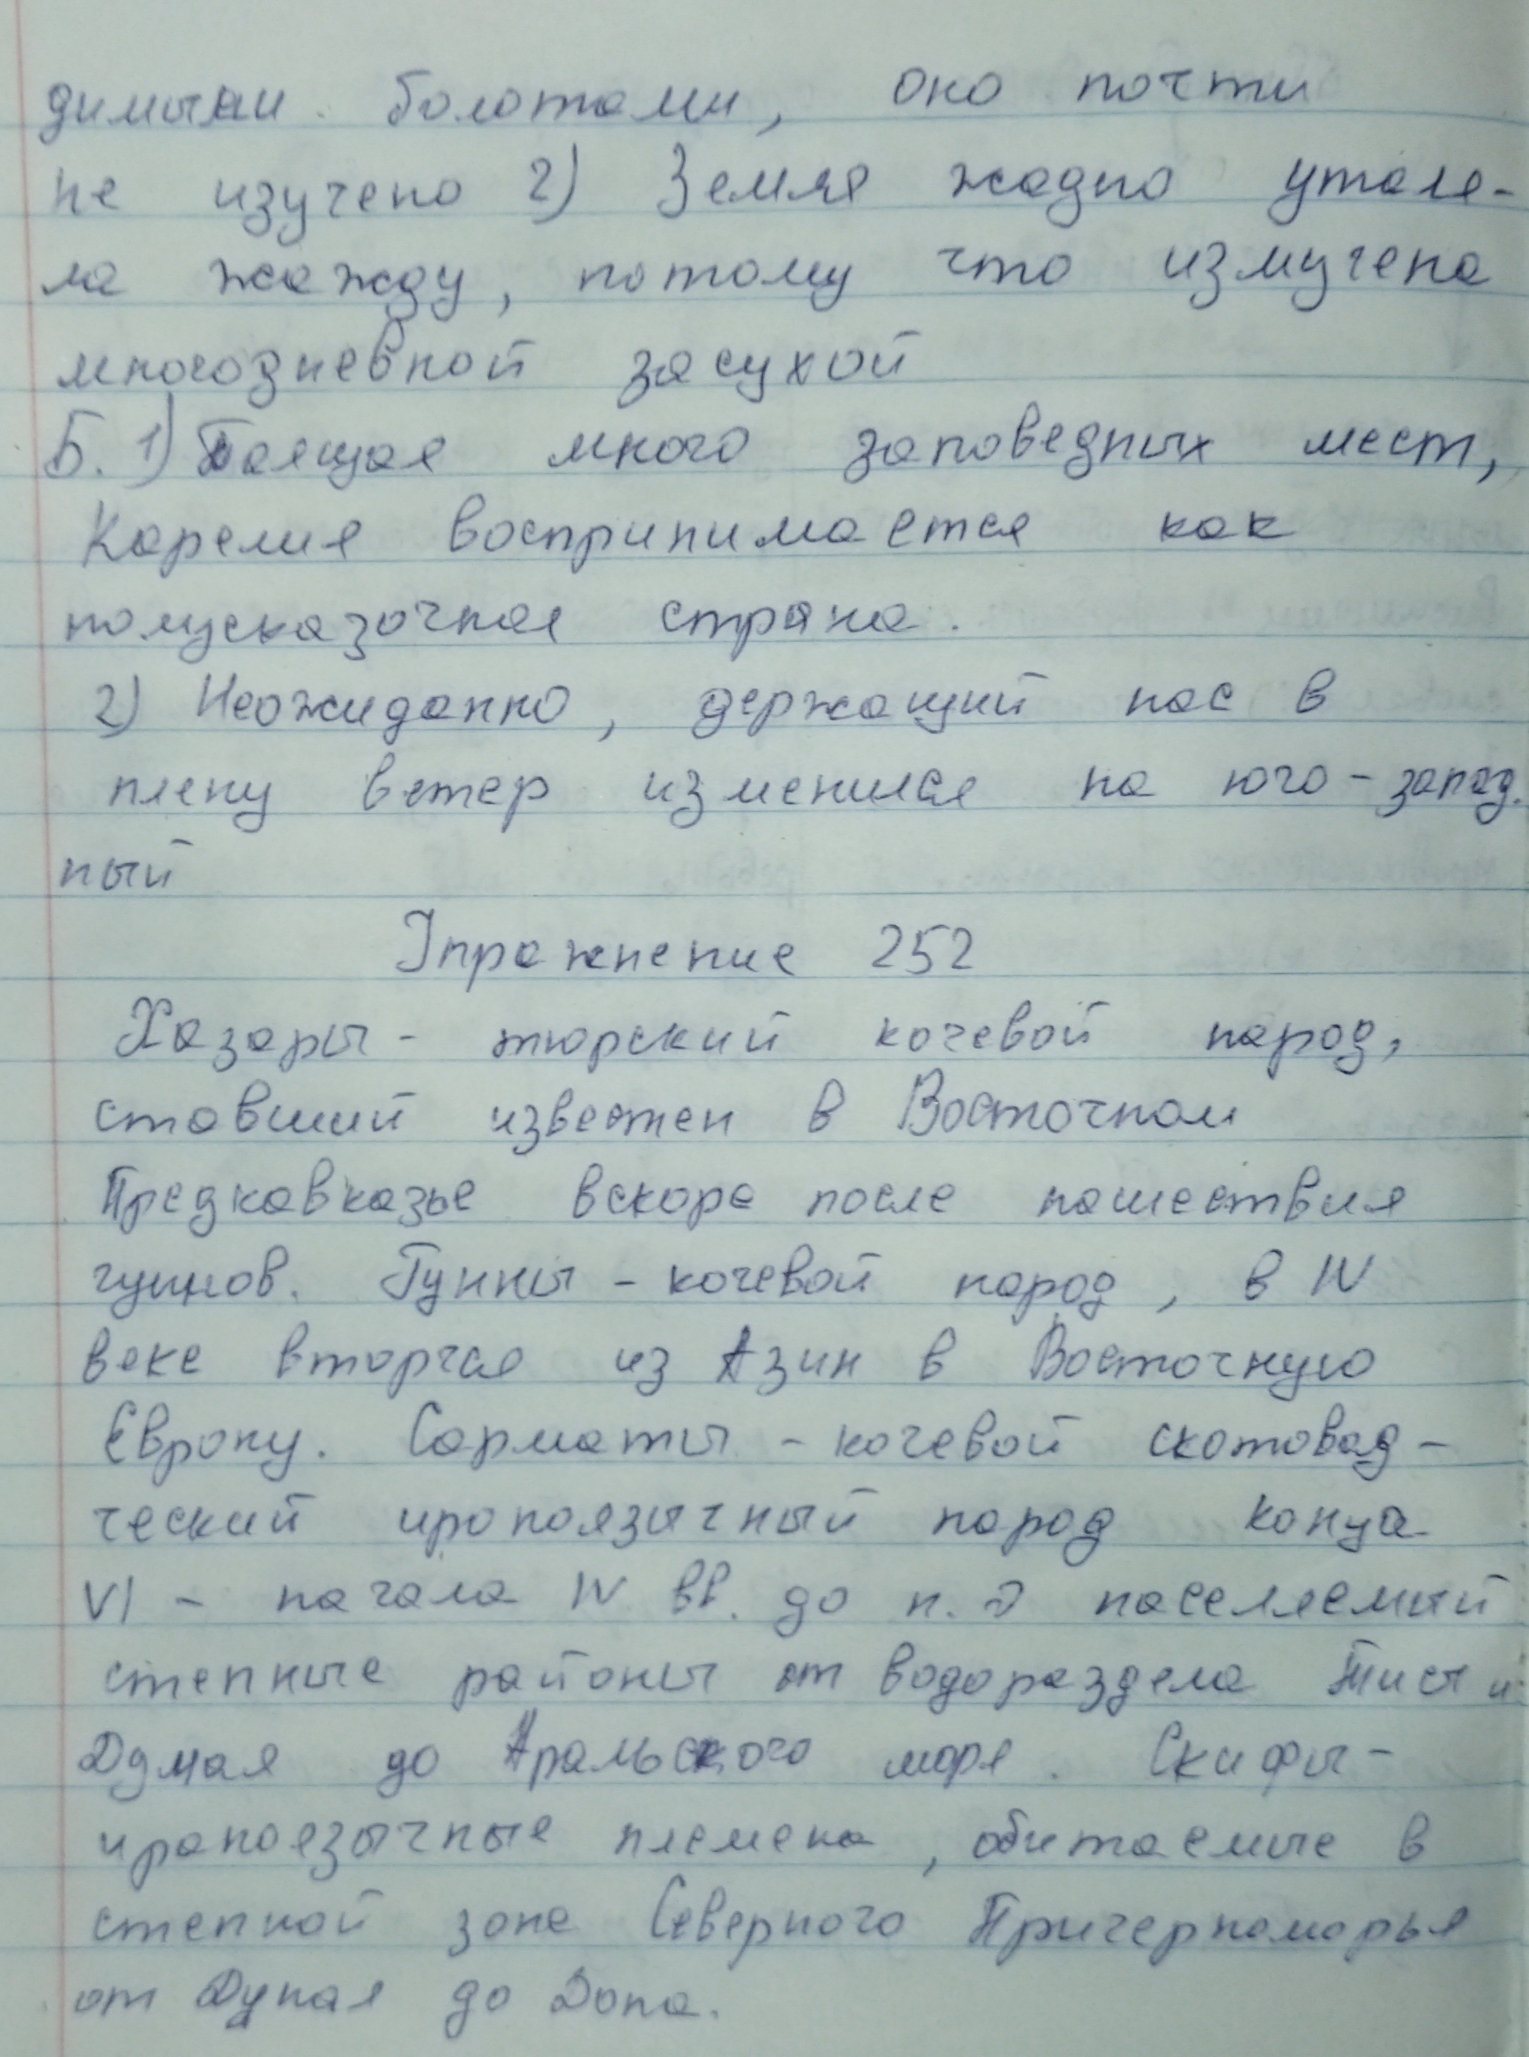 димыми болотами, оно почти
не изучено 2) Земля жадно утоля-
ла жажду, потому что измучена
многодневной засухой
Б. 1) Таящая много заповедных мест,
Карелия воспринимается как
полусказочная страна.
2) Неожиданно, держащий нас в
плену ветер изменился на юго-запад.
ный
Упражнение 252
Хазары - тюрский кочевой народ,
ставший известен в Восточном
Предкавказье вскоре после нашествия
гуннов. Гунны - кочевой народ, в IV
веке вторгся из Азии в Восточную
Европу. Сарматы - кочевой скотовод-
ческий ироноязычный народ конца
VI - начала IV вв. до н. э населяемый
степные районы от водораздела Тисы и
Дуная до Аральского моря. Скифы -
ираноязычные племена, обитаемые в
степной зоне Северного Причерноморья
от Дуная до Дона.